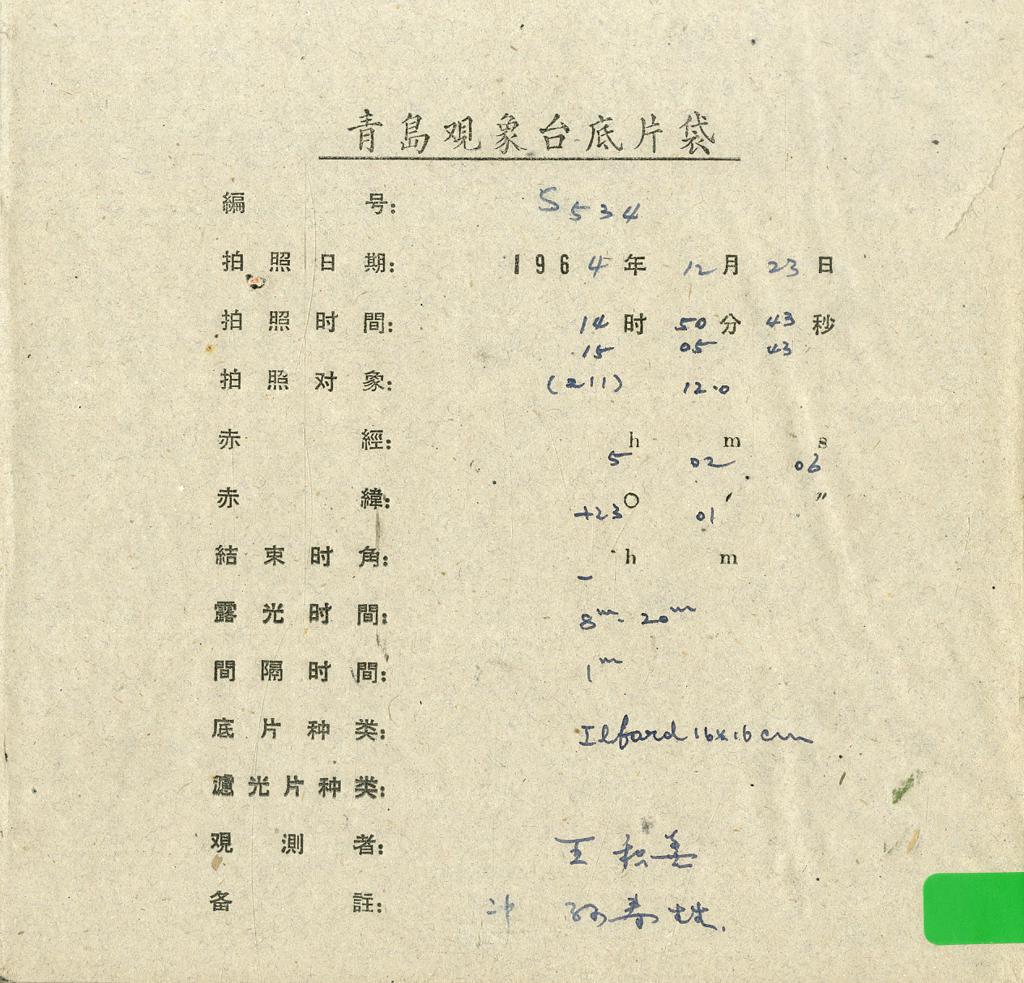 青島观象台底片袋
編号: S534
拍照日期: 1964年 12月 23日
拍照时間: 14时 50分 43秒
15 05 43
拍照对象: (211) 12.0
赤經: 5h 02m 06s
赤緯: +23° 01′ ″
結束时角: - h m
露光时間: 8m. 20m
間隔时間: 1m
底片种类: Ilford 16x16cm
濾光片种类:
观測者: 王积善
备註: 冲 孙寿